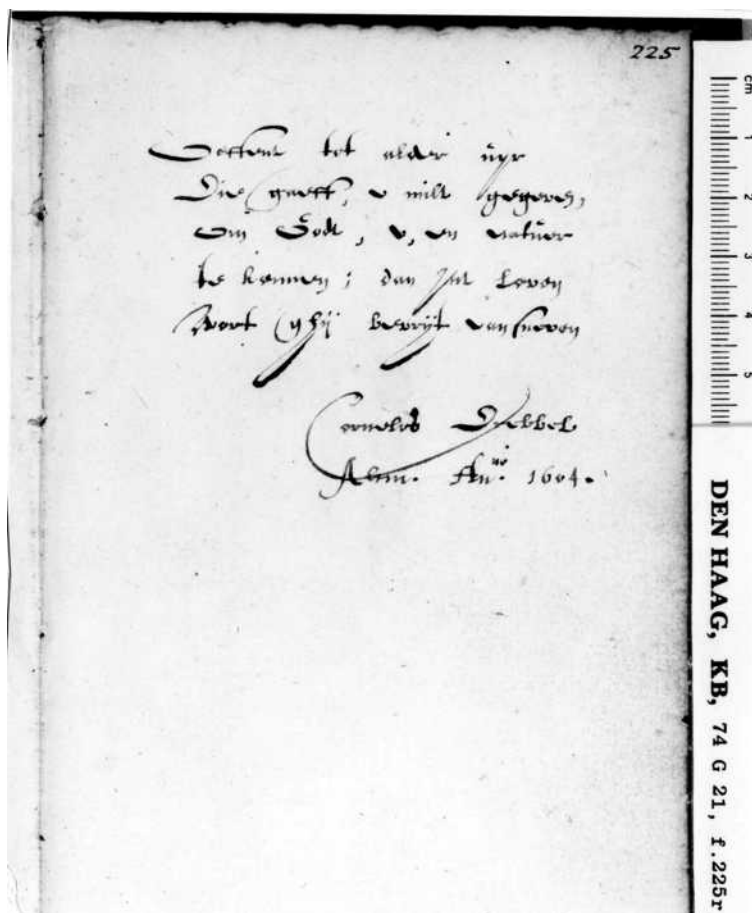 225
Oeffent tot alder uyr
Die gaeft, u milt gegeven,
Om Godt, u, en natuer
te kennen; dan int Leven
Wort ghij bevryt van sneven
Cornelis Drebbel
Alcm. An:no 1604.
cm
1
2
3
4
5
DEN HAAG, KB, 74 G 21, f.225r